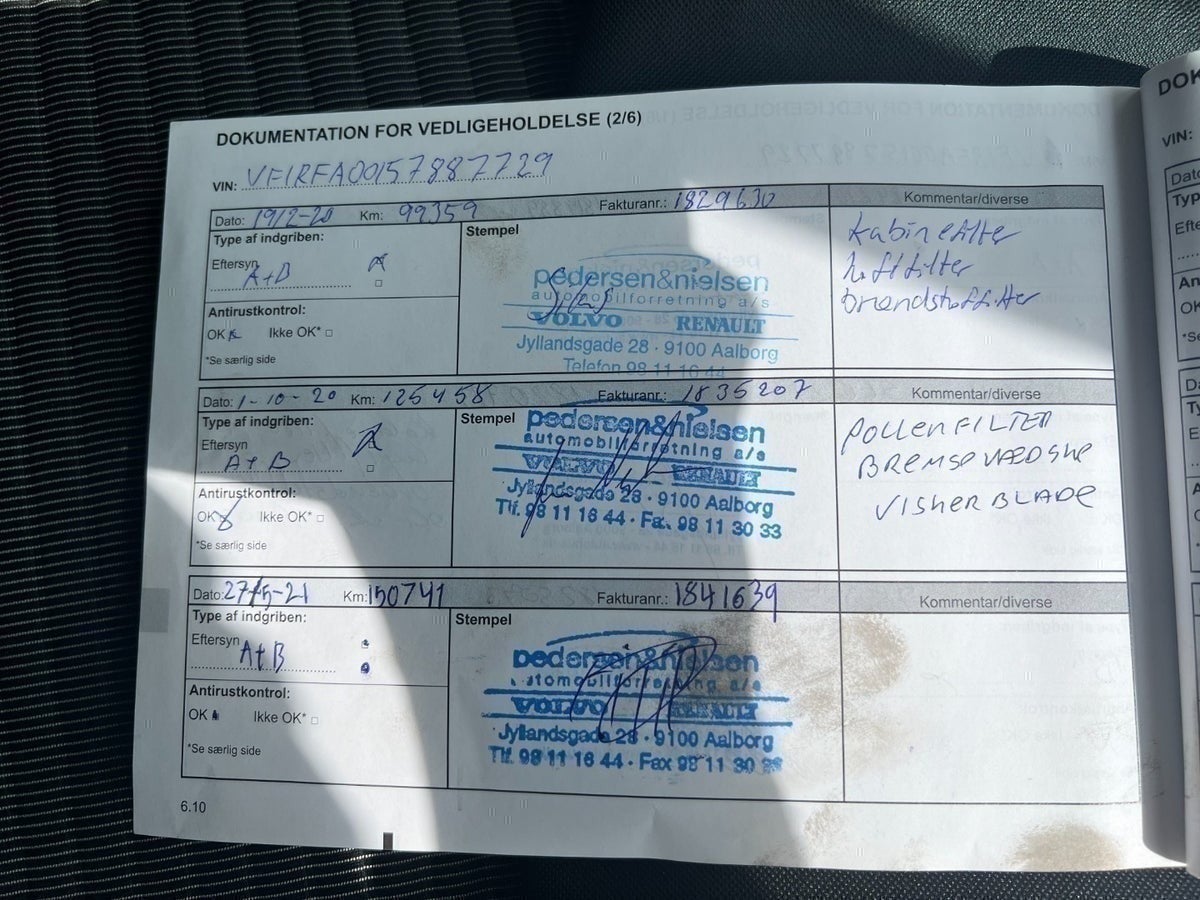 DOKUMENTATION FOR VEDLIGEHOLDELSE (2/6)
VIN: VF1RFA00157887729
Dato: 19/2-20 Km: 99359 Fakturanr.: 1829630 Kommentar/diverse
Type af indgriben:
Eftersyn A+B
Antirustkontrol:
OK Ikke OK* □
*Se særlig side
Stempel
pedersen&nielsen
automobilforretning a/s
VOLVO RENAULT
Jyllandsgade 28 · 9100 Aalborg
Telefon 98 11 16 44
kabinefilter
luftfilter
brændstoffilter
Dato: 1-10-20 Km: 125458 Fakturanr.: 1835207 Kommentar/diverse
Type af indgriben:
Eftersyn A+B
Antirustkontrol:
OK Ikke OK* □
*Se særlig side
Stempel
pedersen&nielsen
automobilforretning a/s
VOLVO RENAULT
Jyllandsgade 28 · 9100 Aalborg
Tlf. 98 11 16 44 · Fax 98 11 30 33
POLLENFILTER
BREMSEVÆDSKE
VISKERBLADE
Dato: 27/5-21 Km: 150741 Fakturanr.: 1841639 Kommentar/diverse
Type af indgriben:
Eftersyn A+B
Antirustkontrol:
OK Ikke OK* □
*Se særlig side
Stempel
pedersen&nielsen
automobilforretning a/s
VOLVO RENAULT
Jyllandsgade 28 · 9100 Aalborg
Tlf. 98 11 16 44 · Fax 98 11 30
6.10
VIN: